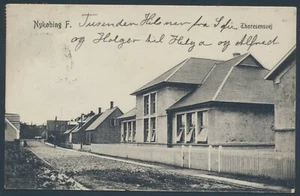 Nykøbing F. Tusenden Hilsner fra Sofie
Thoresensvej
og Holger til Helga og Alfred